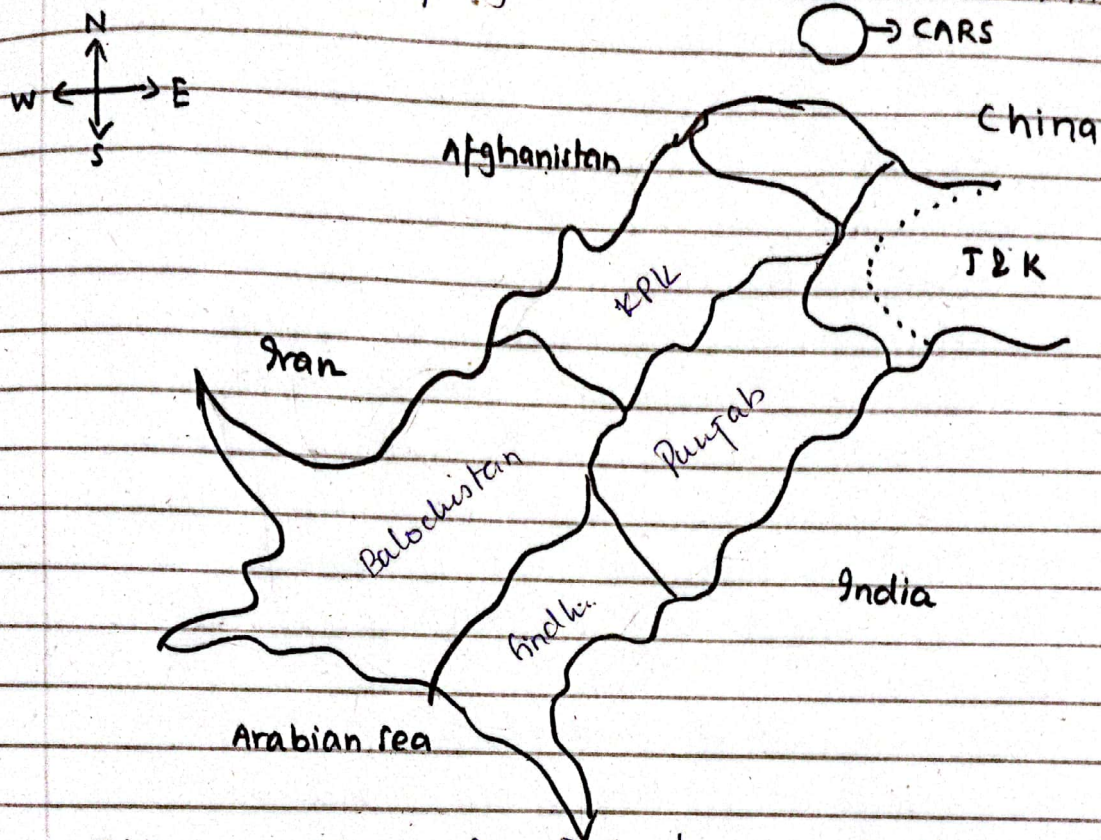 N
→ CARS
W E
S
China
Afghanistan
J & K
KPK
Iran
Punjab
Balochistan
India
Sindh
Arabian sea